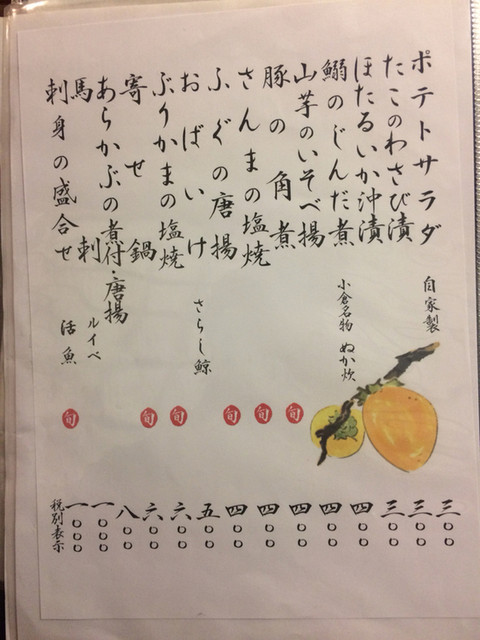 ポテトサラダ 自家製 三〇〇
たこのわさび漬 三〇〇
ほたるいか沖漬 三〇〇
鰯のじんだ煮 小倉名物 ぬか炊 四〇〇
山芋のいそべ揚 四〇〇
豚の角煮 旬 四〇〇
さんまの塩焼 旬 四〇〇
ふぐの唐揚 旬 四〇〇
おばいけ さらし鯨 五〇〇
ぶりかまの塩焼 旬 六〇〇
寄せ鍋 旬 六〇〇
あらかぶの煮付・唐揚 八〇〇
馬刺 ルイベ 一〇〇〇
刺身の盛合せ 活魚 旬 一〇〇〇
税別表示